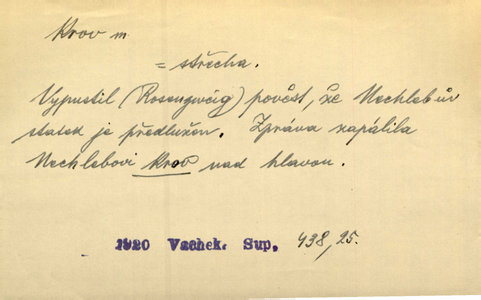 Krov m
= střecha.
Vypustil (Rosenzweig) pověst, že Nechlebův
statek je předlužen. Zpráva zapálila
Nechlebovi krov nad hlavou.
1920 Vachek. Sup. 438,25.